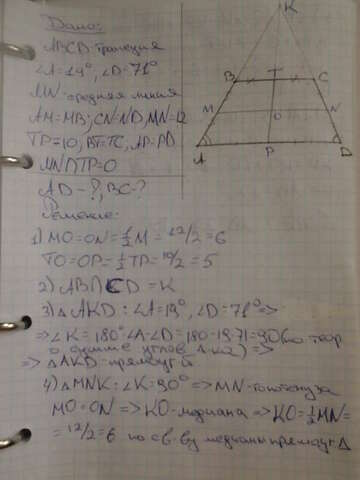 Дано:
ABCD-трапеция
∠A=19°, ∠D=71°
MN-средняя линия
AM=MB; CN=ND, MN=12
TP=10, BT=TC, AP=PD
MN∩TP=O
AD-?, BC-?
Решение:
1) MO=ON=½M=12/2=6
TO=OP=½TP=10/2=5
2) AB∩CD=K
3) △AKD: ∠A=19°, ∠D=71° =>
=> ∠K=180°-∠A-∠D=180-19-71=90 (по теор
о сумме углов △-ка) =>
=> △AKD-прямоуг-й.
4) △MNK: ∠K=90° => MN-гипотенуза
MO=ON => KO-медиана => KO=½MN=
=12/2=6 по св-ву медианы прямоуг △
K
B T C
M O N
A P D